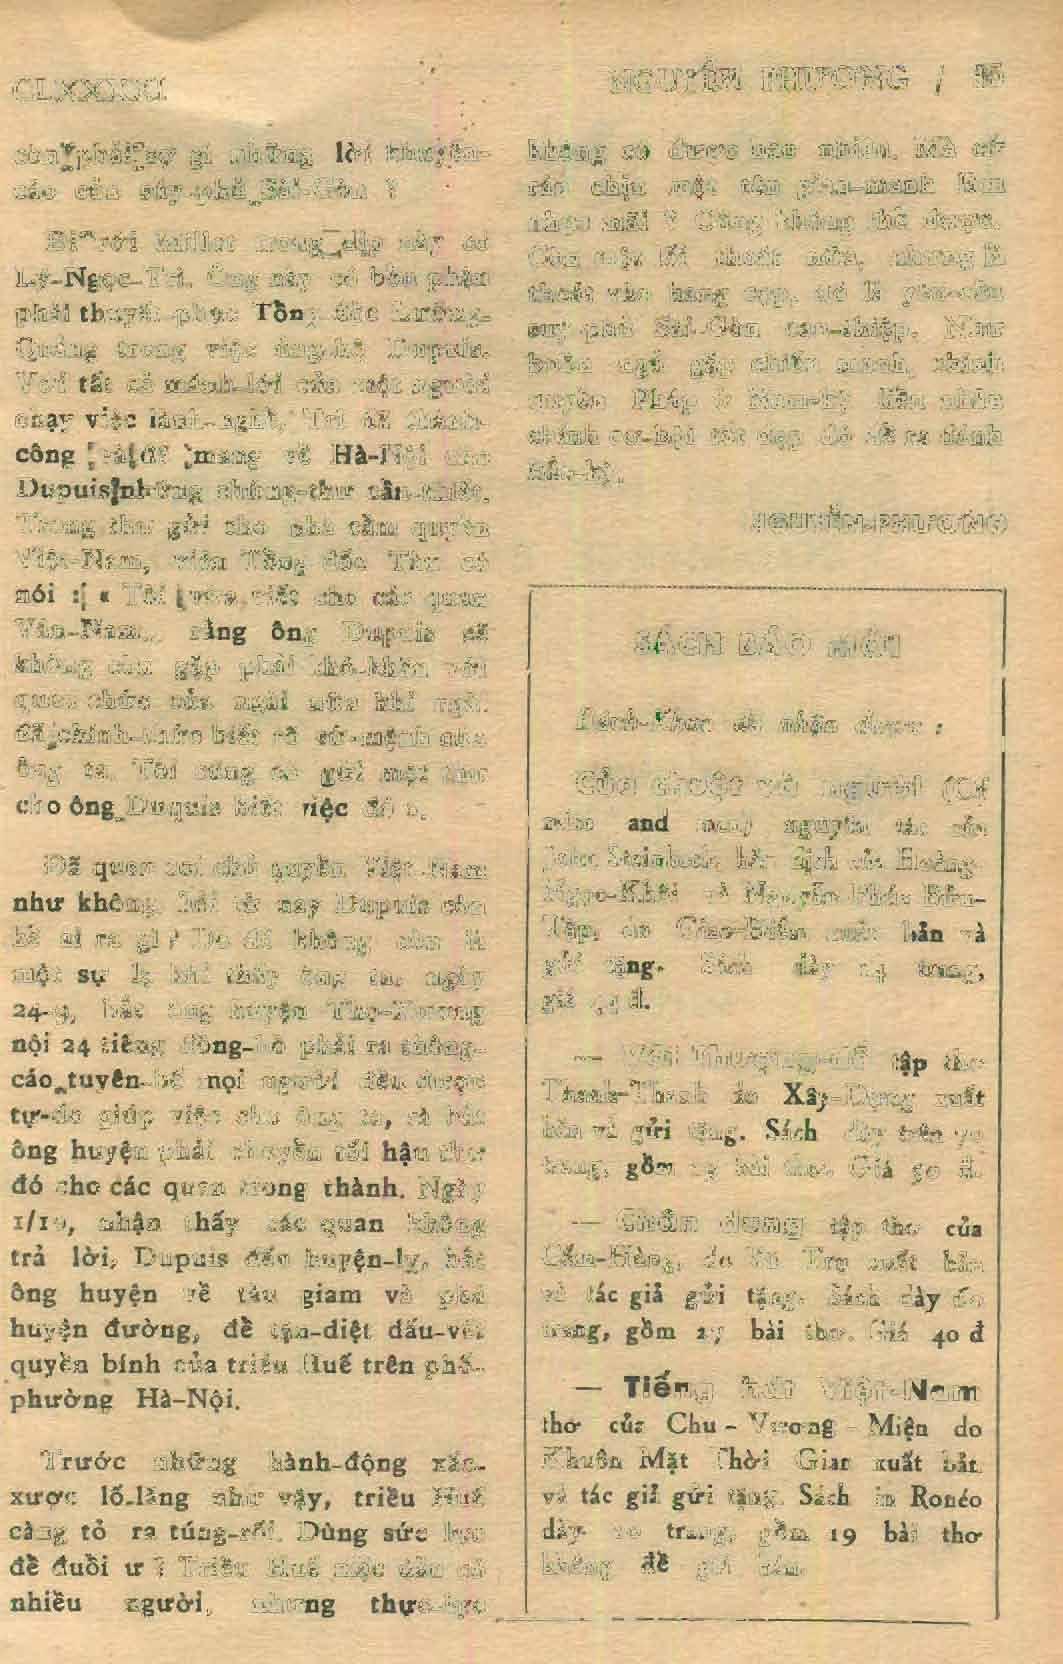 NGUYỄN PHƯƠNG / 45
còn phải sợ gì những lời khuyên-
cáo của súy-phủ Sài-Gòn ?
Millot trong dịp này có
Lý-Ngọc-Trí. Ông này có bổn phận
phải thuyết-phục Tổng đốc Lưỡng-
Quảng trong việc ủng-hộ Dupuis.
Với tất cả mánh-lới của một người
chạy việc lành-nghề, Trí đã thành-
công và đã mang về Hà-Nội cho
Dupuis những chứng-thư cần-thiết.
Trong thư gửi cho nhà cầm quyền
Việt-Nam, viên Tổng đốc Tàu có
nói : « Tôi vừa viết cho các quan
Vân-Nam, rằng ông Dupuis sẽ
không còn gặp phải khó-khăn với
quan chức của ngài nữa khi ngài
đã chính-thức biết rõ sứ-mệnh của
ông ta. Tôi cũng có gửi một thư
cho ông Dupuis biết việc đó ».
Đã quen coi chủ quyền Việt-Nam
như không, kể từ nay Dupuis còn
kể ai ra gì ? Do đó không còn là
một sự lạ khi thấy ông ta, ngày
24-9, bắt ông huyện Thọ-Xương
nội 24 tiếng đồng-hồ phải ra thông-
cáo tuyên-bố mọi người đều được
tự-do giúp việc cho ông ta, và bắt
ông huyện phải chuyển tối hậu thư
đó cho các quan trong thành. Ngày
1/10, nhận thấy các quan không
trả lời, Dupuis đến huyện-lỵ, bắt
ông huyện về tàu giam và phá
huyện đường, để tận-diệt dấu-vết
quyền bính của triều Huế trên phố-
phường Hà-Nội.
Trước những hành-động xấc-
xược lố-lăng như vậy, triều Huế
càng tỏ ra túng-rối. Dùng sức lực
để đuổi ư ? Triều Huế mặc dầu có
nhiều người, nhưng thực-lực
không có được bao nhiêu. Mà cứ
ráo chịu một tên gian-manh làm
nhục mãi ? Cũng không thể được.
Còn một lối thoát nữa, nhưng là
thoát vào hang cọp, đó là yêu-cầu
suý phủ Sài-Gòn can-thiệp. Như
buồn ngủ gặp chiếu manh, chính
quyền Pháp ở Nam-kỳ liền nhân
chính cơ-hội tốt đẹp đó để ra đánh
Bắc-kỳ.
NGUYỄN-PHƯƠNG
SÁCH BÁO MỚI
Bách-Khoa đã nhận được :
Của chuột và người (Of
mice and men) nguyên tác của
John Steinbeck, bản dịch của Hoàng-
Ngọc-Khôi và Nguyễn-Phúc Bửu-
Tập, do xuất bản và
gửi tặng. Sách dày trang,
giá đ.
— tập thơ
Thanh-Thanh do Xây-Dựng xuất
bản và gửi tặng. Sách dày trên
trang, gồm bài thơ. Giá 50 đ.
— Chân dung tập thơ của
do xuất bản
và tác giả gửi tặng. Sách dày
trang, gồm 27 bài thơ. Giá 40 đ
— Tiếng hát Việt-Nam
thơ của Chu - Vương - Miện do
Khuôn Mặt Thời Gian xuất bản
và tác giả gửi tặng. Sách in Ronéo
dày trang, gồm 19 bài thơ
không đề giá bán.